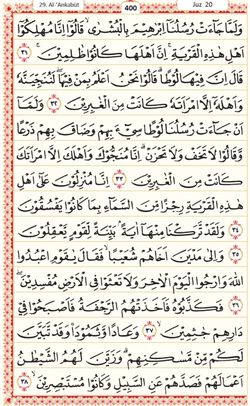 29. Al-'Ankabût
400
Juz 20
وَلَمَّا جَاءَتْ رُسُلُنَا إِبْرٰهِيمَ بِالْبُشْرٰى قَالُوا إِنَّا مُهْلِكُوا
أَهْلِ هٰذِهِ الْقَرْيَةِ إِنَّ أَهْلَهَا كَانُوا ظٰلِمِينَ ٣١
قَالَ إِنَّ فِيهَا لُوطًا قَالُوا نَحْنُ أَعْلَمُ بِمَنْ فِيهَا لَنُنَجِّيَنَّهُ
وَأَهْلَهُ إِلَّا امْرَأَتَهُ كَانَتْ مِنَ الْغٰبِرِينَ ٣٢ وَلَمَّا
أَنْ جَاءَتْ رُسُلُنَا لُوطًا سِيءَ بِهِمْ وَضَاقَ بِهِمْ ذَرْعًا
وَقَالُوا لَا تَخَفْ وَلَا تَحْزَنْ إِنَّا مُنَجُّوكَ وَأَهْلَكَ إِلَّا امْرَأَتَكَ
كَانَتْ مِنَ الْغٰبِرِينَ ٣٣ إِنَّا مُنْزِلُونَ عَلٰى أَهْلِ
هٰذِهِ الْقَرْيَةِ رِجْزًا مِنَ السَّمَاءِ بِمَا كَانُوا يَفْسُقُونَ
٣٤ وَلَقَدْ تَرَكْنَا مِنْهَا آيَةً بَيِّنَةً لِقَوْمٍ يَعْقِلُونَ
٣٥ وَإِلٰى مَدْيَنَ أَخَاهُمْ شُعَيْبًا فَقَالَ يٰقَوْمِ اعْبُدُوا
اللّٰهَ وَارْجُوا الْيَوْمَ الْآخِرَ وَلَا تَعْثَوْا فِي الْأَرْضِ مُفْسِدِينَ
٣٦ فَكَذَّبُوهُ فَأَخَذَتْهُمُ الرَّجْفَةُ فَأَصْبَحُوا فِي
دَارِهِمْ جٰثِمِينَ ٣٧ وَعَادًا وَثَمُودَا وَقَدْ تَبَيَّنَ
لَكُمْ مِنْ مَسٰكِنِهِمْ وَزَيَّنَ لَهُمُ الشَّيْطٰنُ
أَعْمَالَهُمْ فَصَدَّهُمْ عَنِ السَّبِيلِ وَكَانُوا مُسْتَبْصِرِينَ ٣٨